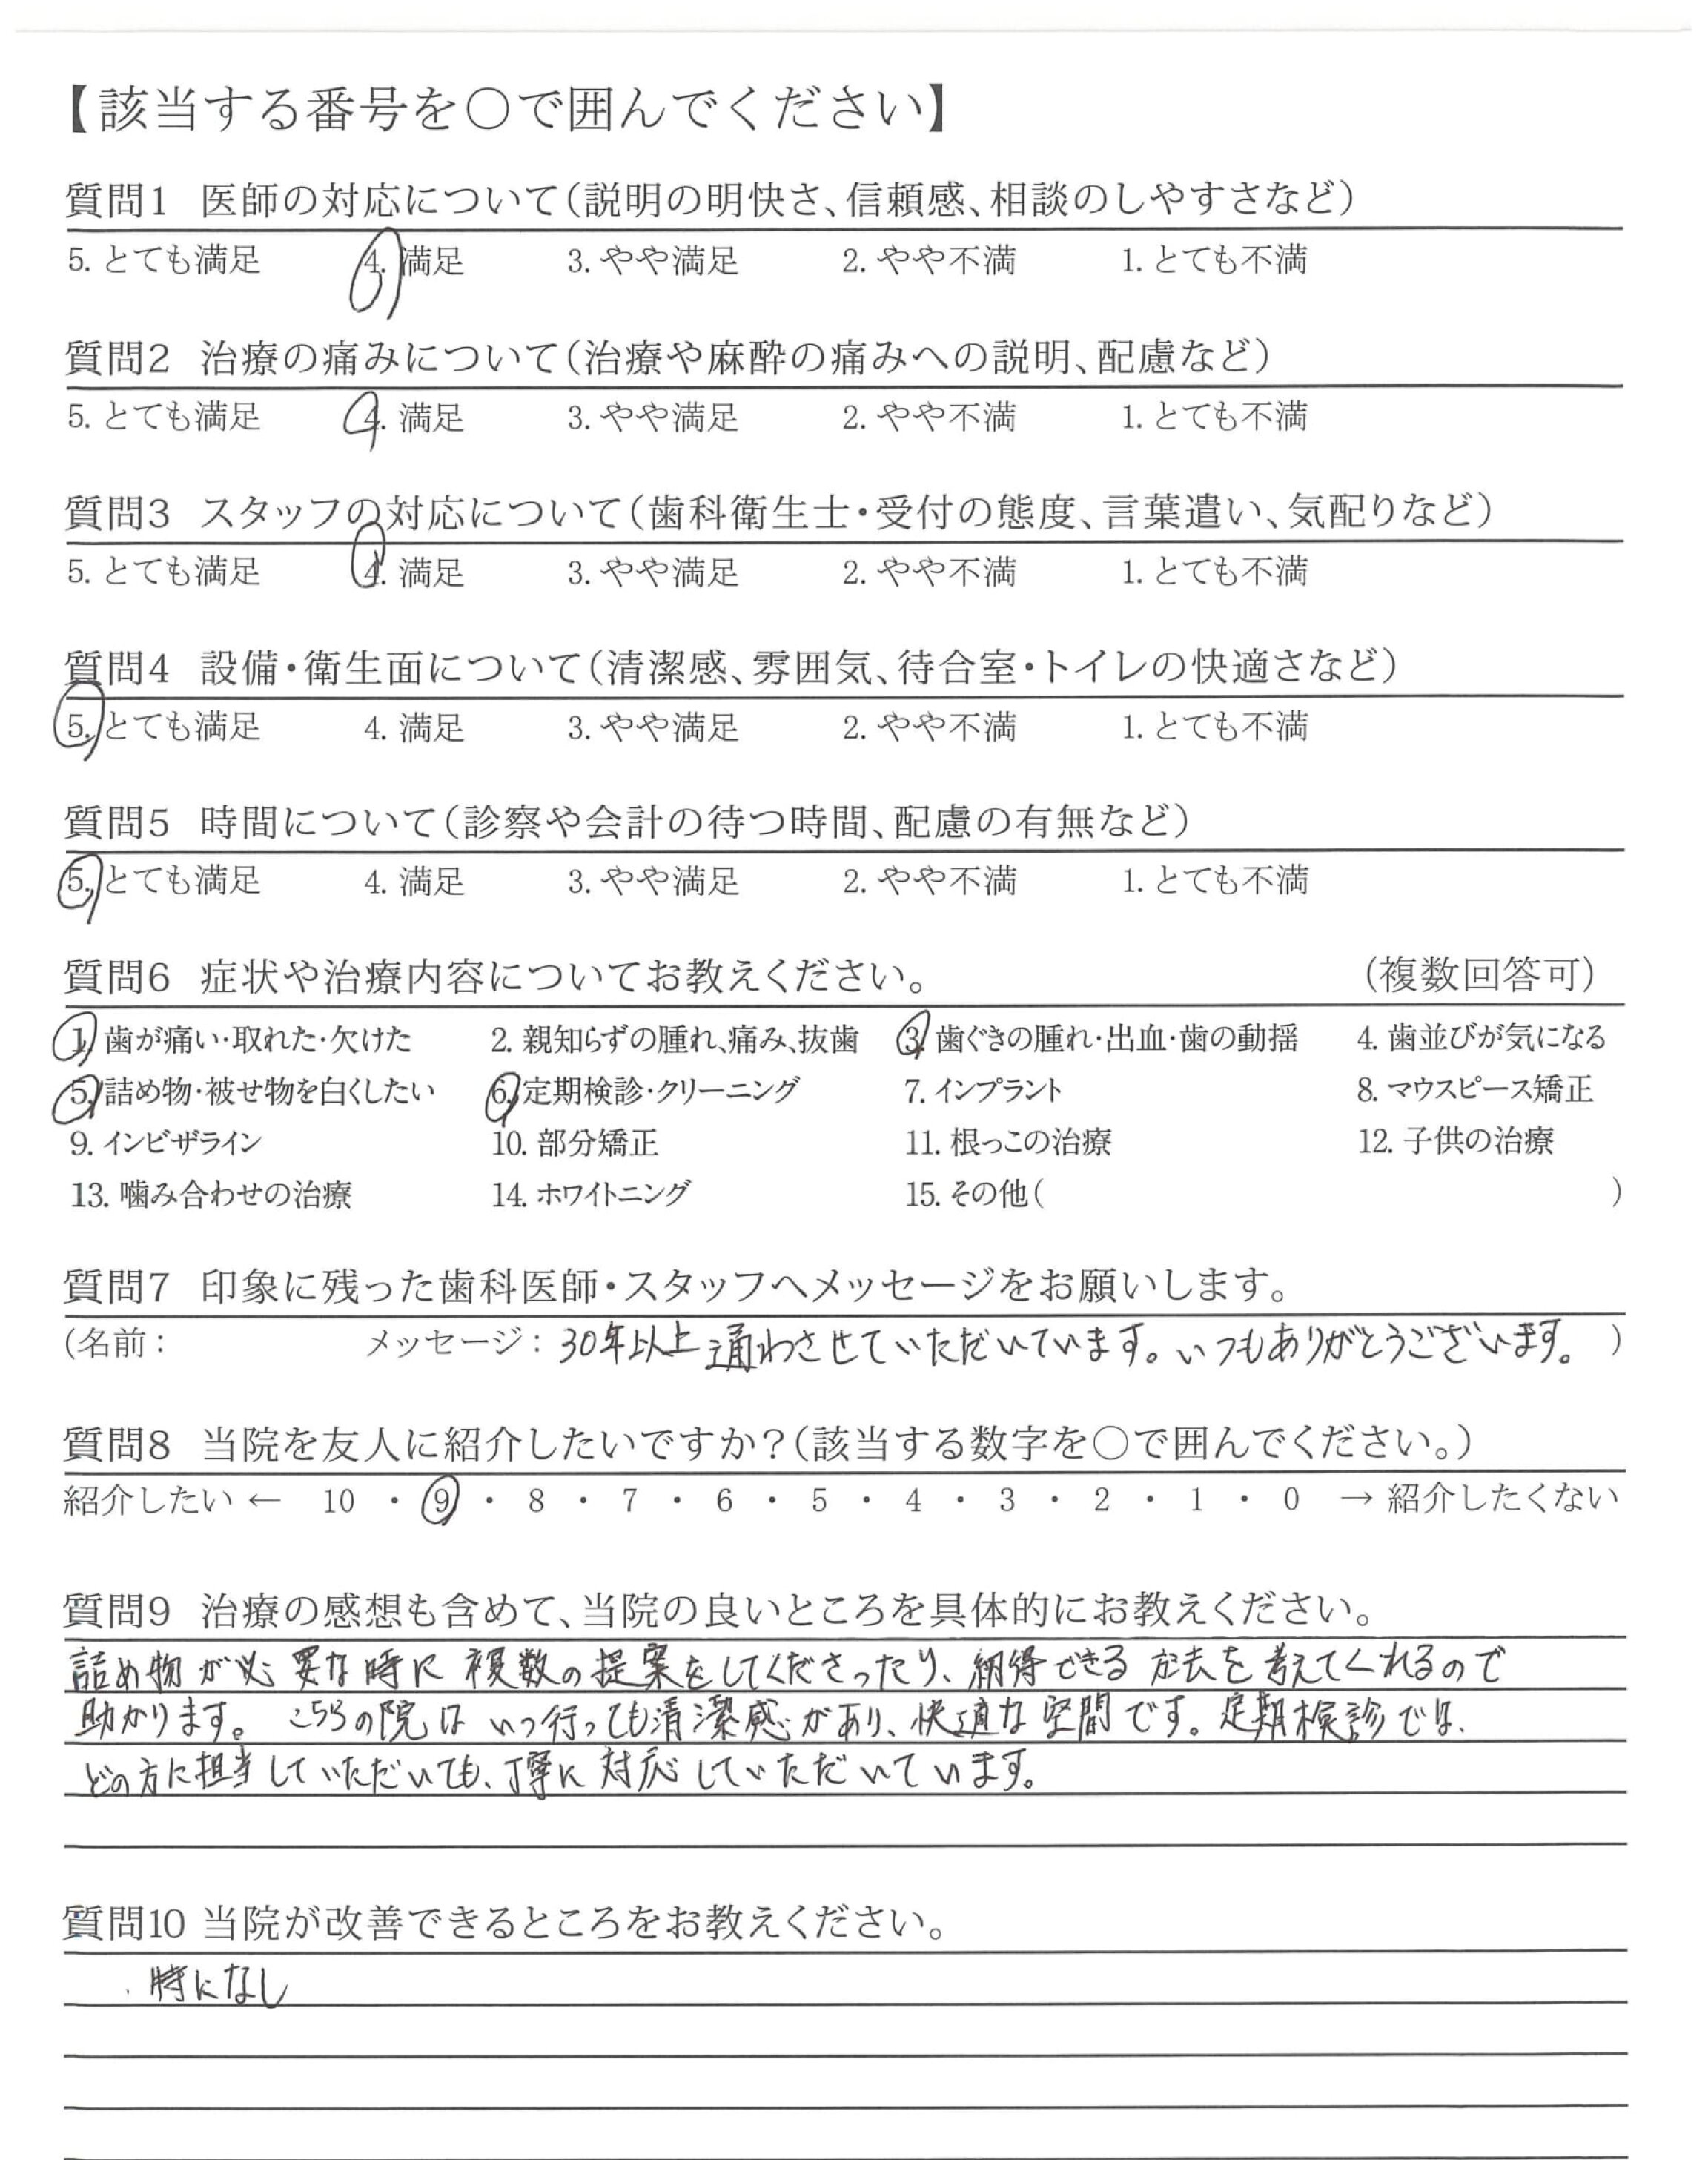 【該当する番号を○で囲んでください】
質問1 医師の対応について(説明の明快さ、信頼感、相談のしやすさなど)
5. とても満足 4. 満足 3. やや満足 2. やや不満 1. とても不満
質問2 治療の痛みについて(治療や麻酔の痛みへの説明、配慮など)
5. とても満足 4. 満足 3. やや満足 2. やや不満 1. とても不満
質問3 スタッフの対応について(歯科衛生士・受付の態度、言葉遣い、気配りなど)
5. とても満足 4. 満足 3. やや満足 2. やや不満 1. とても不満
質問4 設備・衛生面について(清潔感、雰囲気、待合室・トイレの快適さなど)
5. とても満足 4. 満足 3. やや満足 2. やや不満 1. とても不満
質問5 時間について(診察や会計の待つ時間、配慮の有無など)
5. とても満足 4. 満足 3. やや満足 2. やや不満 1. とても不満
質問6 症状や治療内容についてお教えください。 (複数回答可)
1. 歯が痛い・取れた・欠けた 2. 親知らずの腫れ、痛み、抜歯 3. 歯ぐきの腫れ・出血・歯の動揺 4. 歯並びが気になる
5. 詰め物・被せ物を白くしたい 6. 定期検診・クリーニング 7. インプラント 8. マウスピース矯正
9. インビザライン 10. 部分矯正 11. 根っこの治療 12. 子供の治療
13. 噛み合わせの治療 14. ホワイトニング 15. その他( )
質問7 印象に残った歯科医師・スタッフへメッセージをお願いします。
(名前: メッセージ: 30年以上通わさせていただいています。いつもありがとうございます。 )
質問8 当院を友人に紹介したいですか?(該当する数字を○で囲んでください。)
紹介したい ← 10 ・ 9 ・ 8 ・ 7 ・ 6 ・ 5 ・ 4 ・ 3 ・ 2 ・ 1 ・ 0 → 紹介したくない
質問9 治療の感想も含めて、当院の良いところを具体的にお教えください。
詰め物が必要な時に複数の提案をしてくださったり、納得できる方法を考えてくれるので
助かります。こちらの院はいつ行っても清潔感があり、快適な空間です。定期検診では、
どの方に担当していただいても、丁寧に対応していただいています。
質問10 当院が改善できるところをお教えください。
・時になし